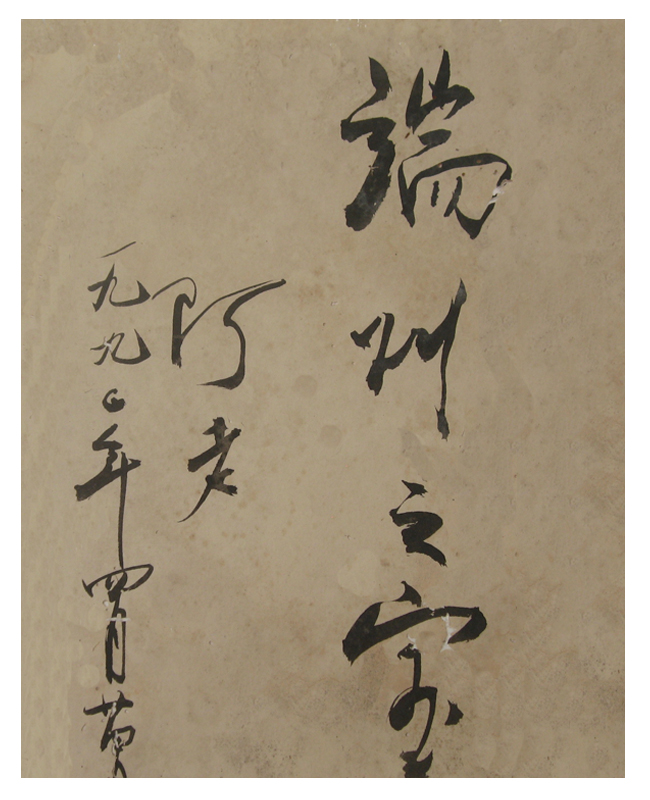 端州之寶
阿老
一九九〇年四月黄